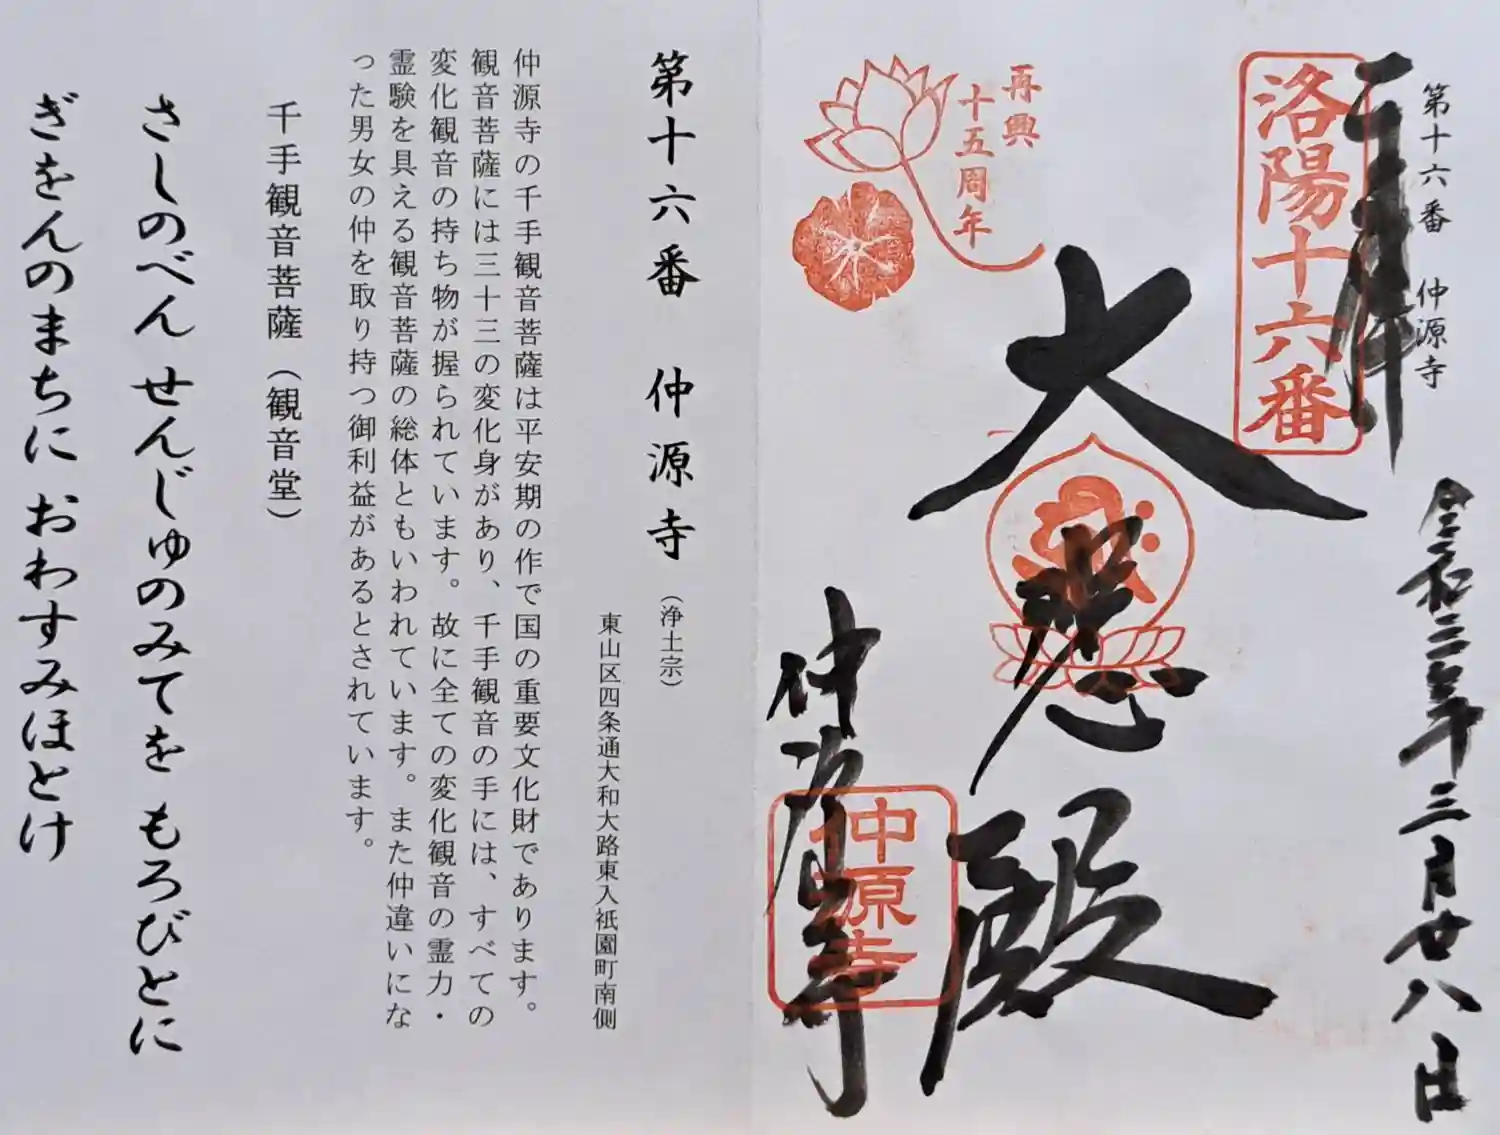 第十六番　仲源寺
奉拝
洛陽十六番
令和二年三月廿八日
再興
十五周年
大悲殿
仲源寺
仲源寺
第十六番　仲源寺（浄土宗）
東山区四条通大和大路東入祇園町南側
仲源寺の千手観音菩薩は平安期の作で国の重要文化財であります。
観音菩薩には三十三の変化身があり、千手観音の手には、すべての
変化観音の持ち物が握られています。故に全ての変化観音の霊力・
霊験を具える観音菩薩の総体ともいわれています。また仲違いにな
った男女の仲を取り持つ御利益があるとされています。
千手観音菩薩（観音堂）
さしのべん せんじゅのみてを もろびとに
ぎをんのまちに おわすみほとけ